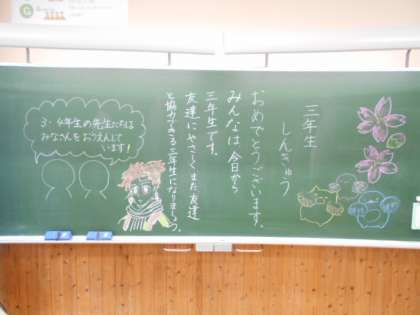 三年生
しんきゅう
おめでとうございます。
みんなは今日から
三年生です。
友達にやさしく、また友達
と協力できる三年生になりましょう。
3・4年生の先生たちは
みなさんをおうえんして
います!